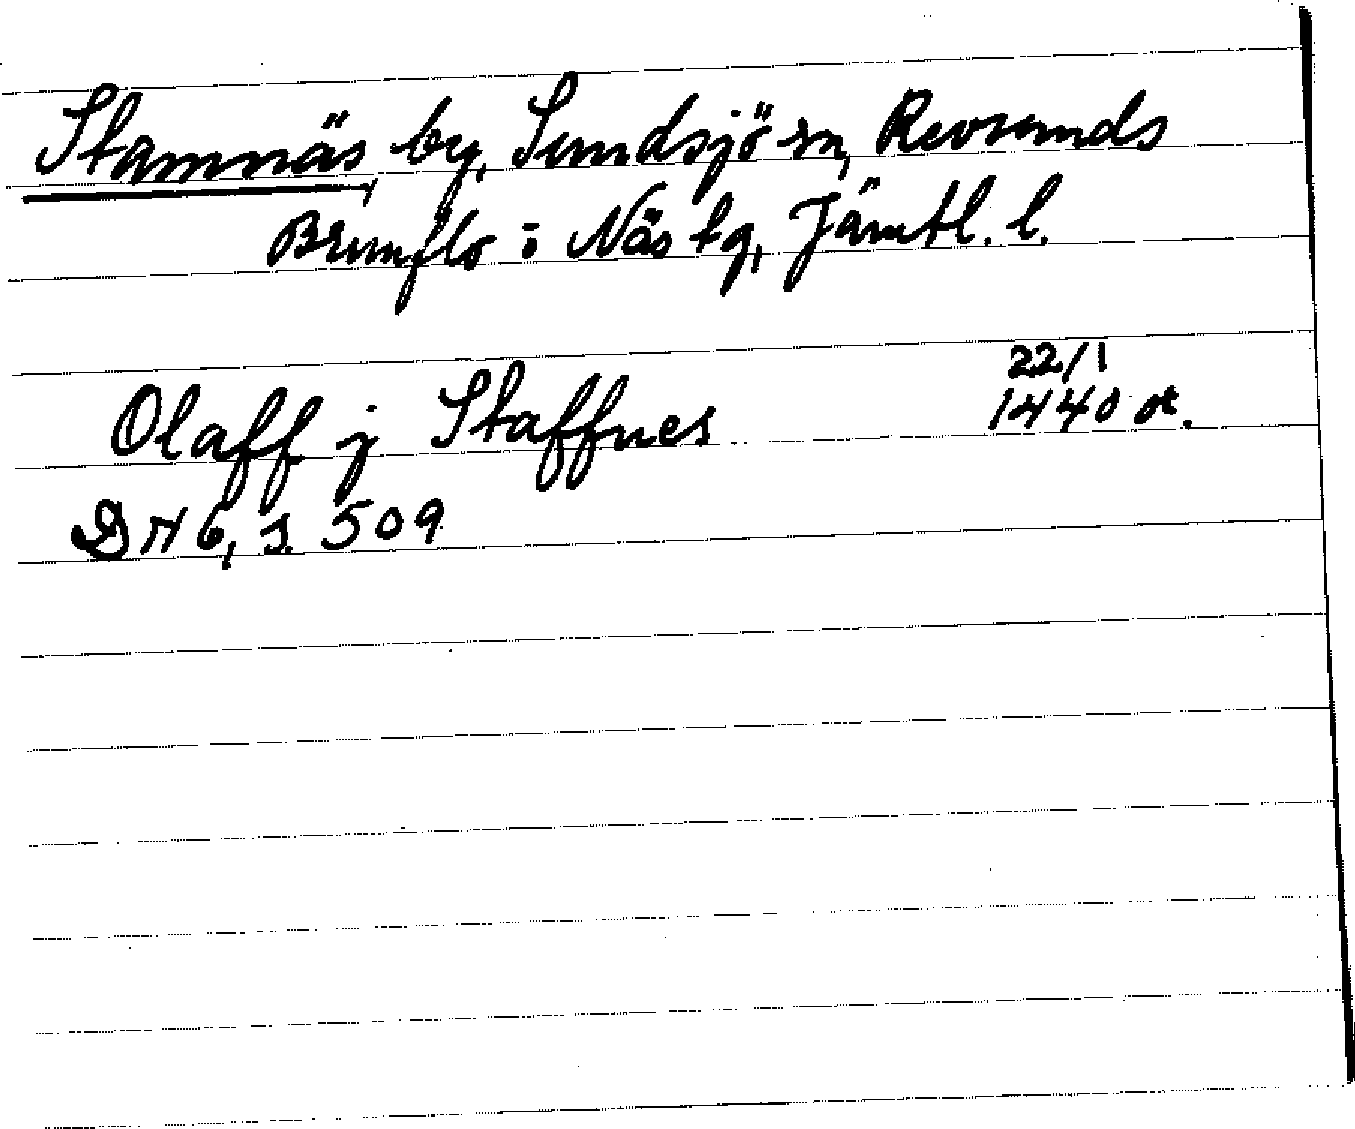 Stamnäs, by, Sundsjö sn, Revsunds
Brunflo o Näs tg, Jämtl. l.
22/1
Olaff j Staffnes 1440 or.
DN 6, s. 509